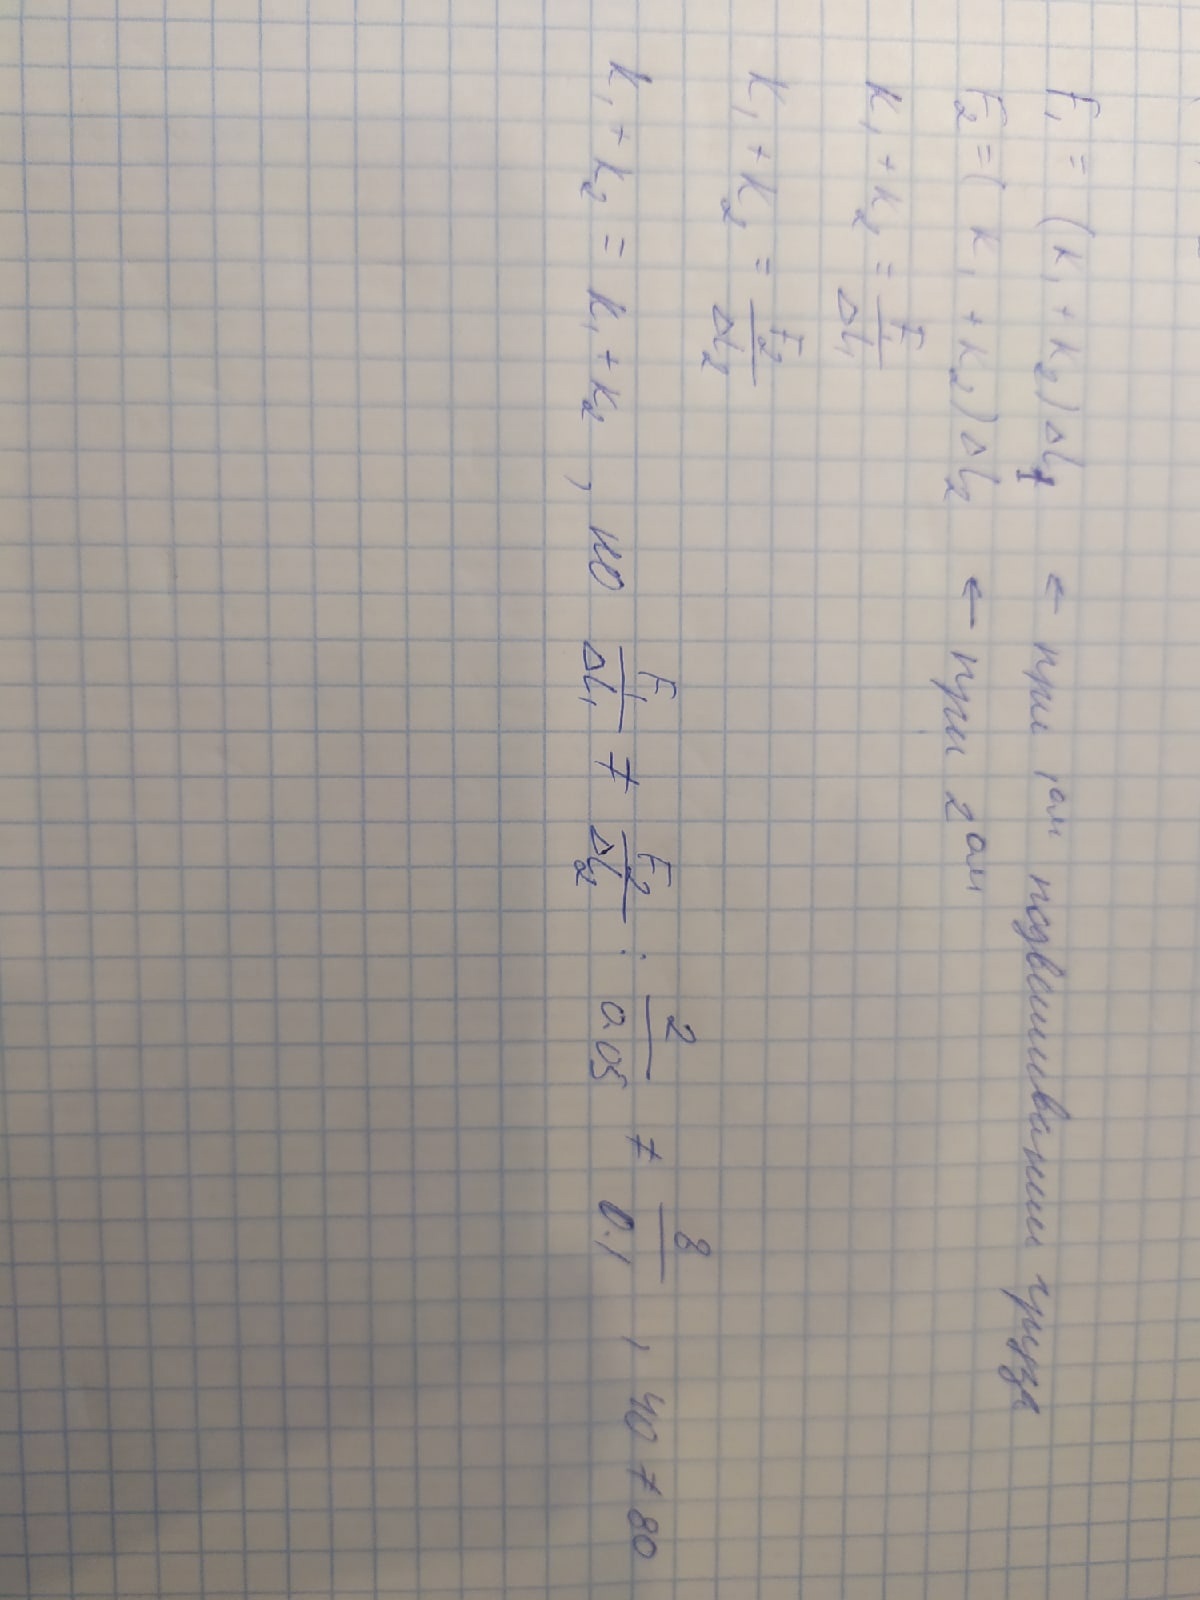 F₁ = (k₁ + k₂) Δl₁ ← при 1ом подвешивании груза
F₂ = (k₁ + k₂) Δl₂ ← при 2ом
k₁ + k₂ = F₁/Δl₁
k₁ + k₂ = F₂/Δl₂
k₁ + k₂ = k₁ + k₂, но F₁/Δl₁ ≠ F₂/Δl₂ : 2/0.05 ≠ 8/0.1, 40 ≠ 80